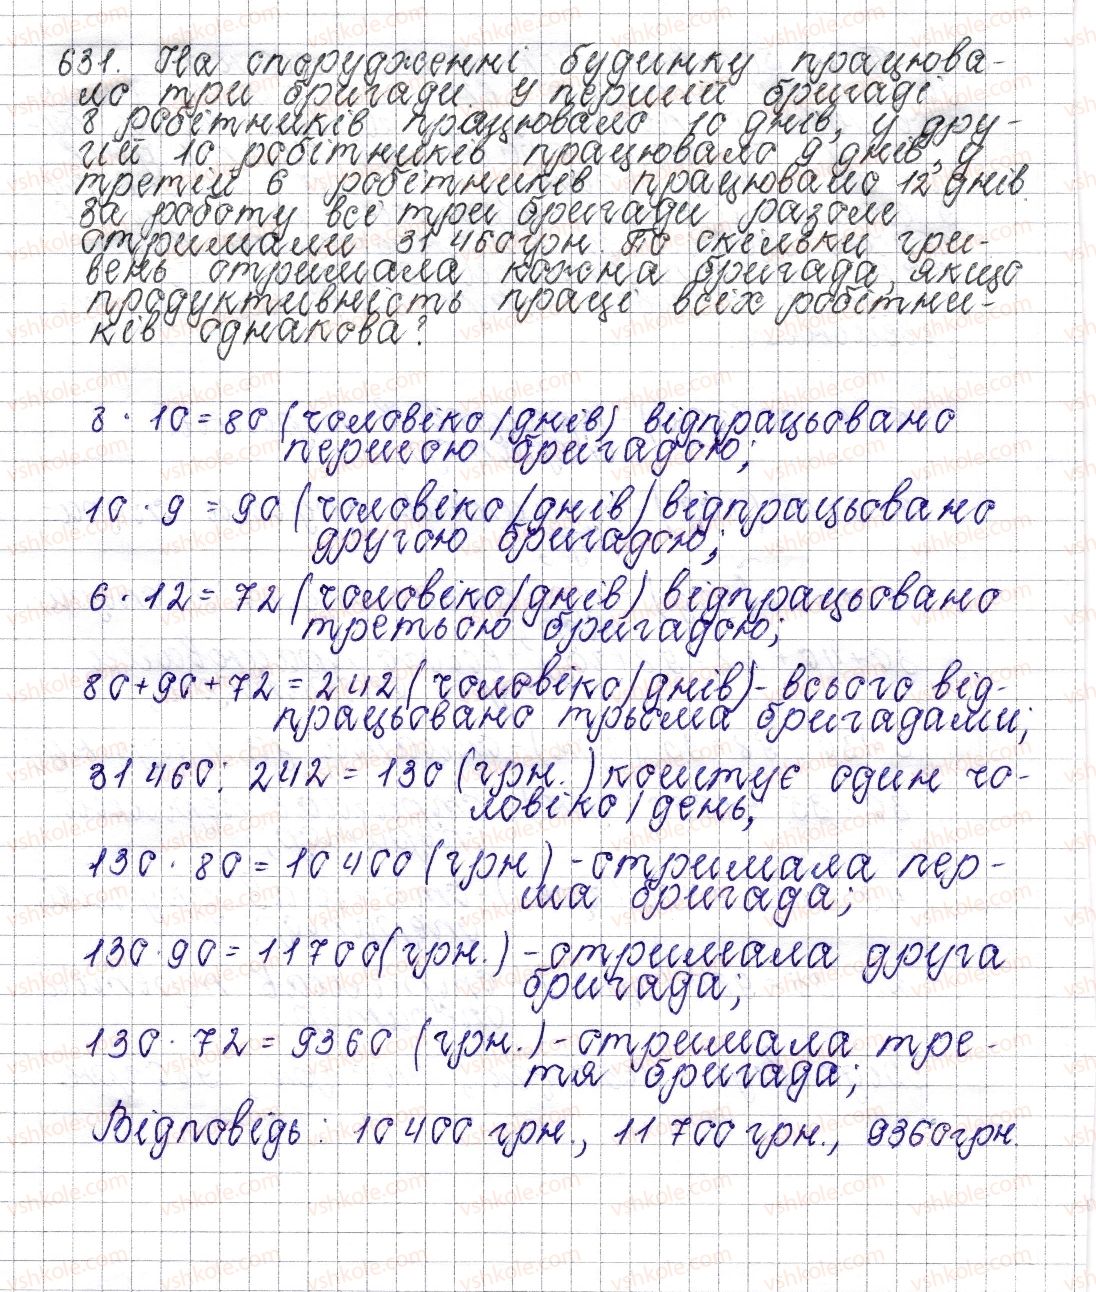 631. На спорудженні будинку працюва-
ло три бригади. У першій бригаді
8 робітників працювало 10 днів, у дру-
гій 10 робітників працювало 9 днів, у
третій 6 робітників працювало 12 днів.
За роботу всі три бригади разом
отримали 31 460 грн. По скільки гри-
вень отримала кожна бригада, якщо
продуктивність праці всіх робітни-
ків однакова?
8 · 10 = 80 (чоловіко/днів) відпрацьовано
першою бригадою;
10 · 9 = 90 (чоловіко/днів) відпрацьовано
другою бригадою;
6 · 12 = 72 (чоловіко/днів) відпрацьовано
третьою бригадою;
80+90+72 = 242 (чоловіко/днів) - всього від-
працьовано трьома бригадами;
31 460 : 242 = 130 (грн.) коштує один чо-
ловіко/день,
130 · 80 = 10 400 (грн) - отримала пер-
ша бригада;
130 · 90 = 11 700 (грн.) - отримала друга
бригада;
130 · 72 = 9360 (грн.) - отримала тре-
тя бригада;
Відповідь: 10 400 грн., 11 700 грн., 9360 грн.